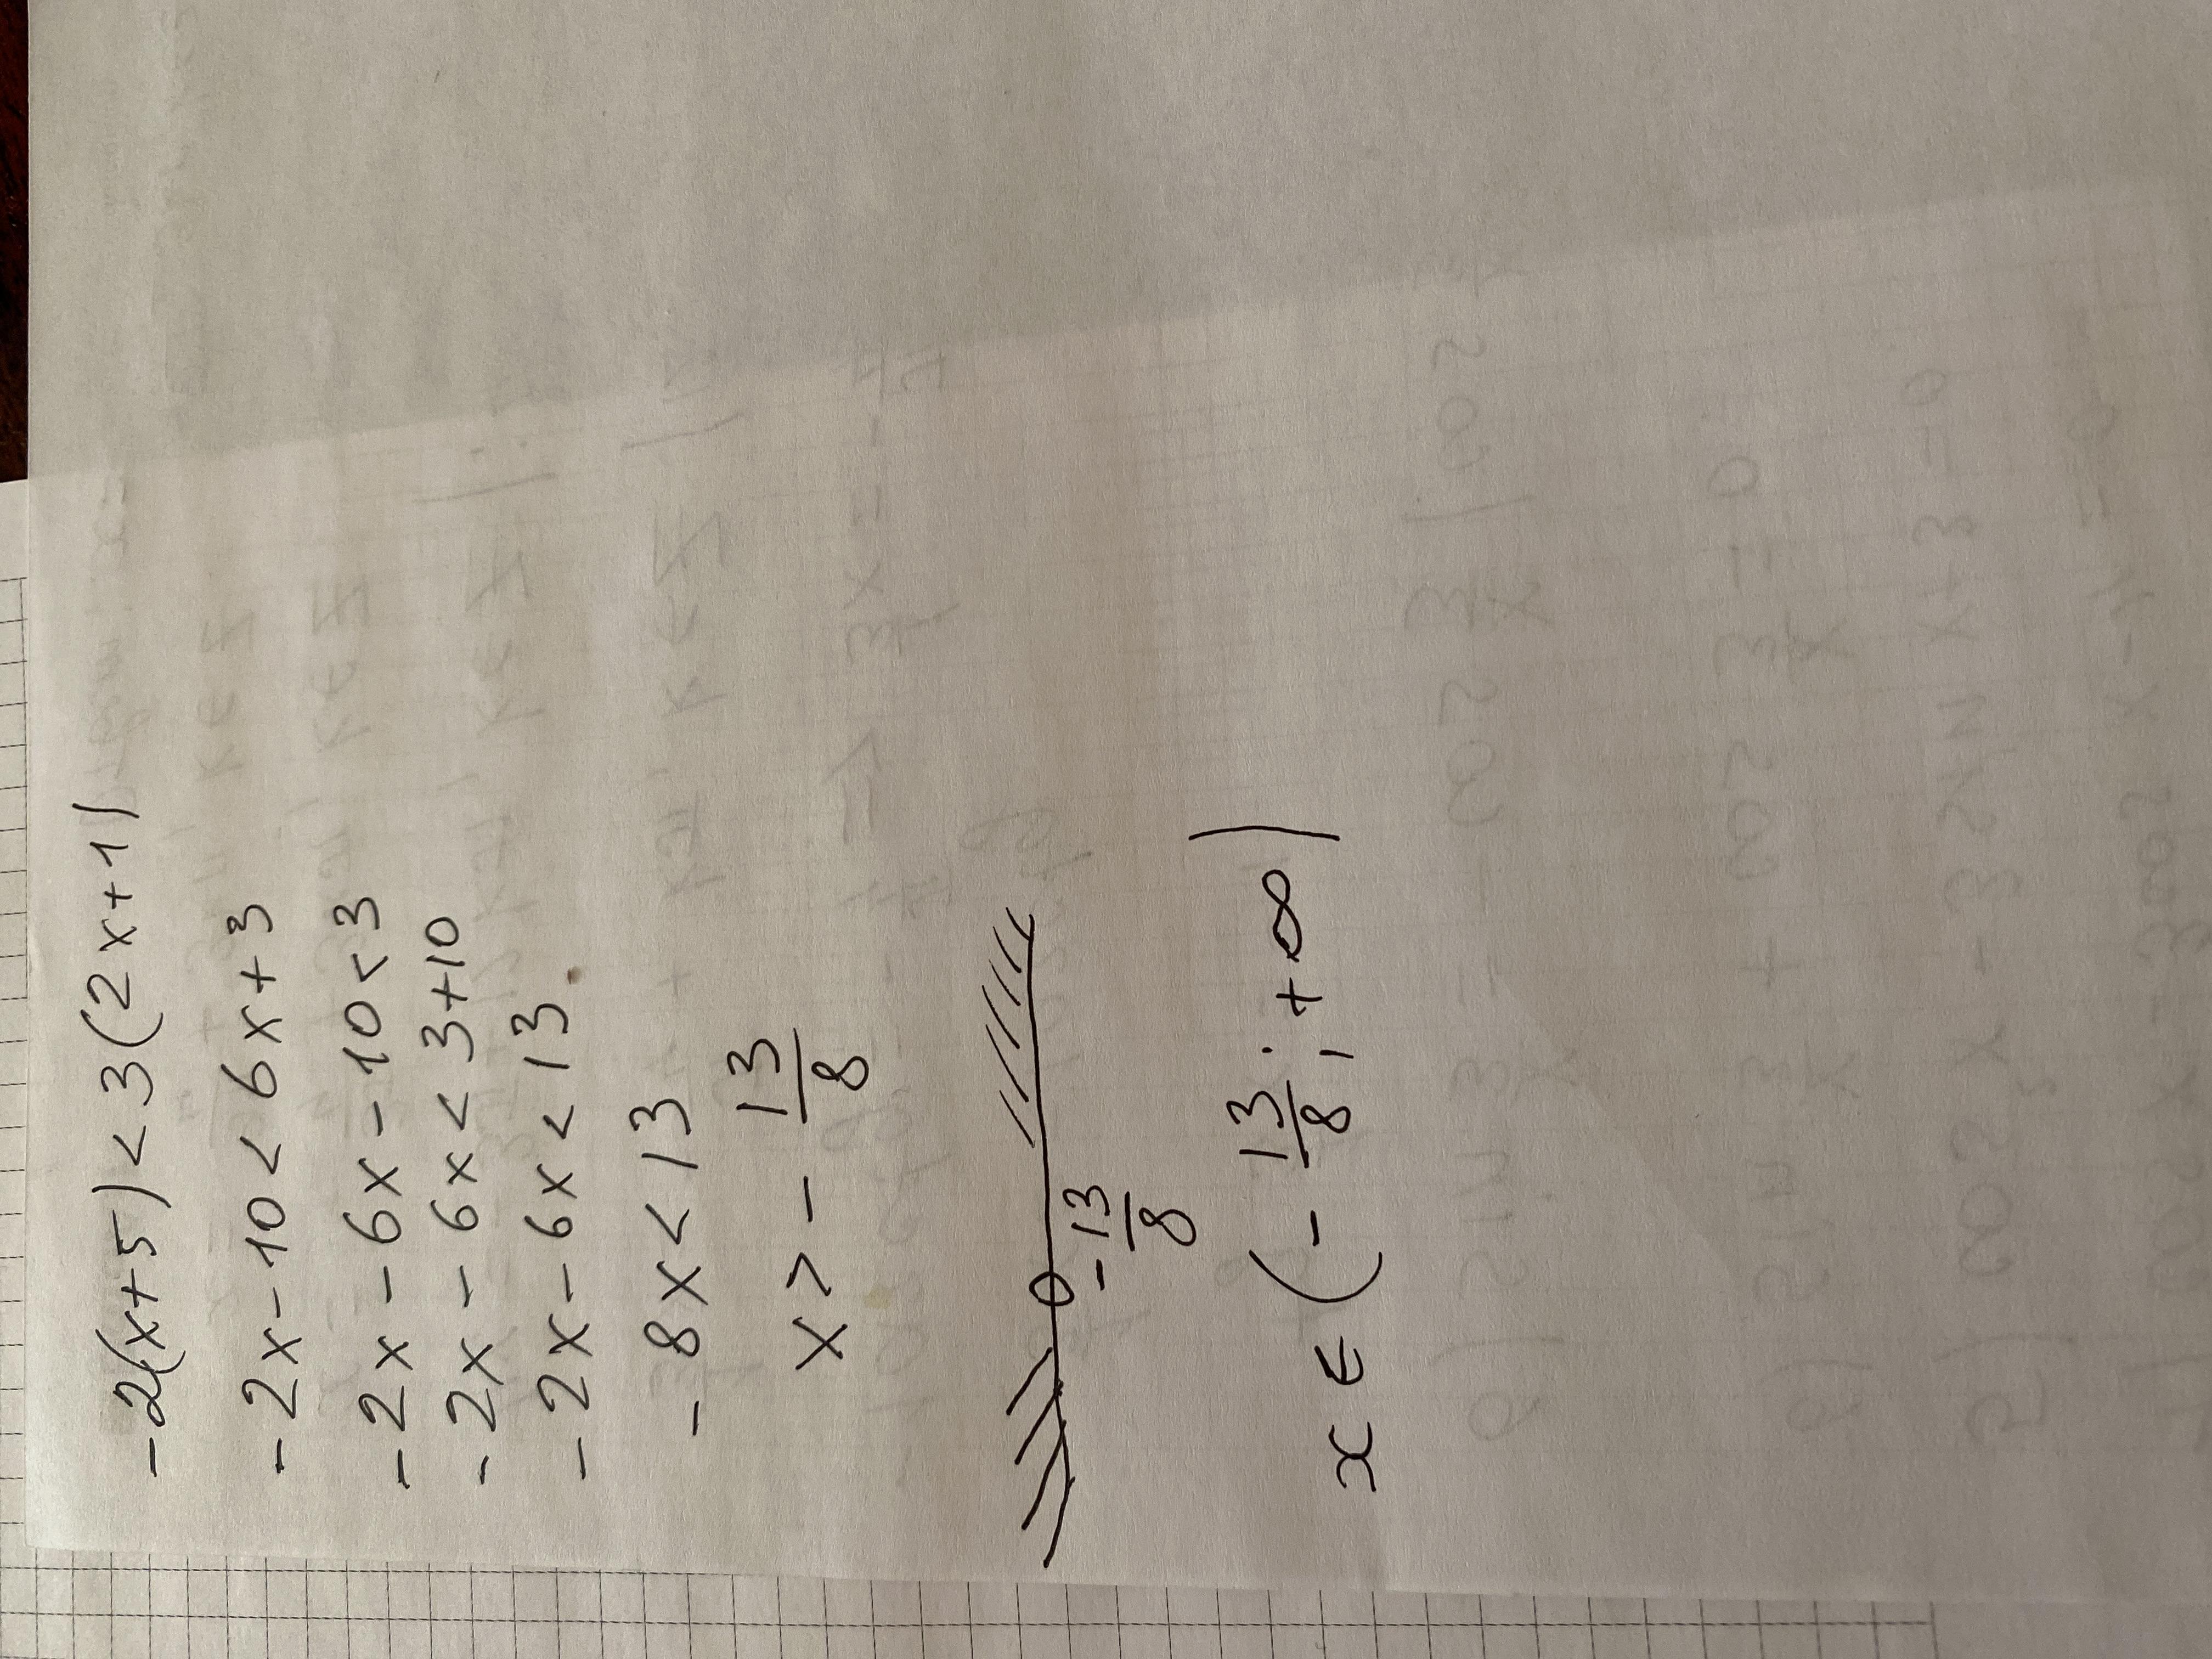 -2(x+5)<3(2x+1)
-2x-10<6x+3
-2x-6x-10<3
-2x-6x<3+10
-2x-6x<13
-8x<13
x>-13/8
-13/8
x∈(-13/8;+∞)